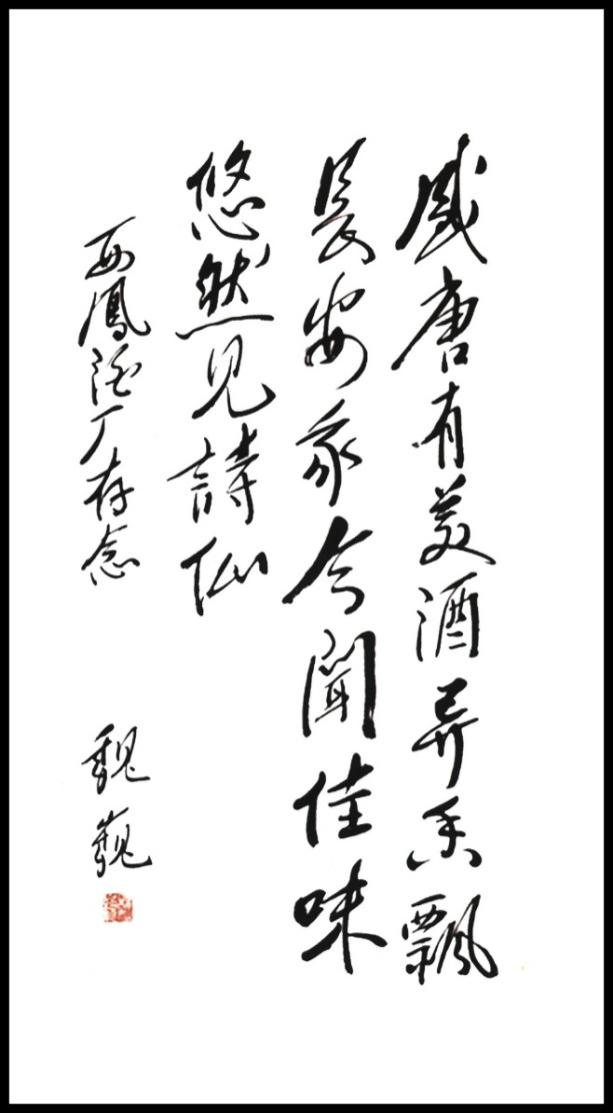 盛唐有美酒异香飘
長安我今聞佳味
悠然見詩仙
西鳳酒厂存念
魏巍